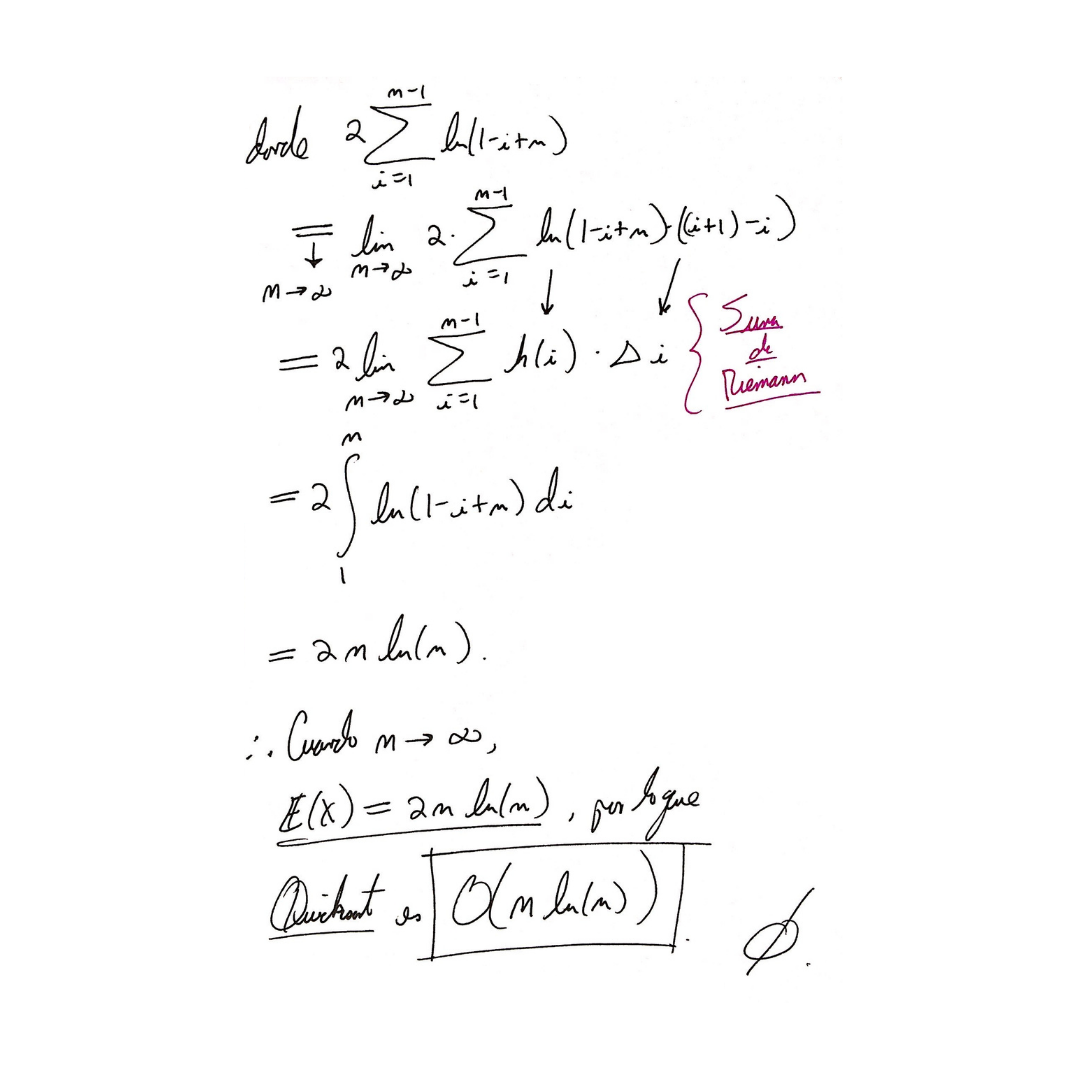 donde 2 ∑_{i=1}^{n-1} ln(1-i+n)
=↓_{n→∞} lim_{n→∞} 2·∑_{i=1}^{n-1} ln(1-i+n)·((i+1)-i)
= 2 lim_{n→∞} ∑_{i=1}^{n-1} h(i) · Δi { Suma de Riemann
= 2 ∫_1^n ln(1-i+n) di
= 2n ln(n).
∴ Cuando n → ∞,
E(X) = 2n ln(n), por lo que
Quicksort es O(n ln(n)).